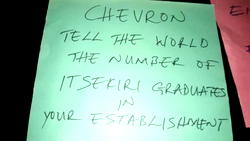 CHEVRON
TELL THE WORLD
THE NUMBER OF
ITSEKIRI GRADUATES
IN
YOUR ESTABLISHMENT